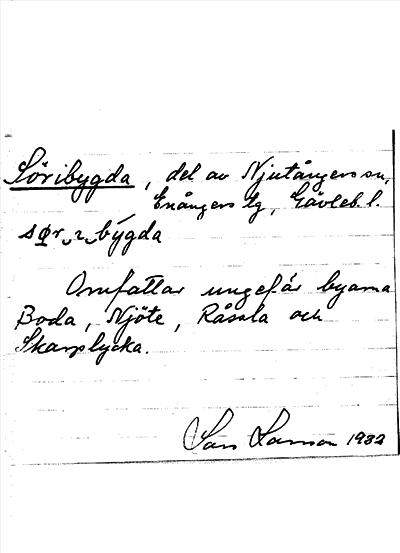 Söribygda, del av Njutångers sn,
Enångers tg, Gävleb. l.
sør ‿ı‿ býgda
Omfattar ungefär byarna
Boda, Njöte, Råssla och
Skarplycka.
Lars Larsson 1932